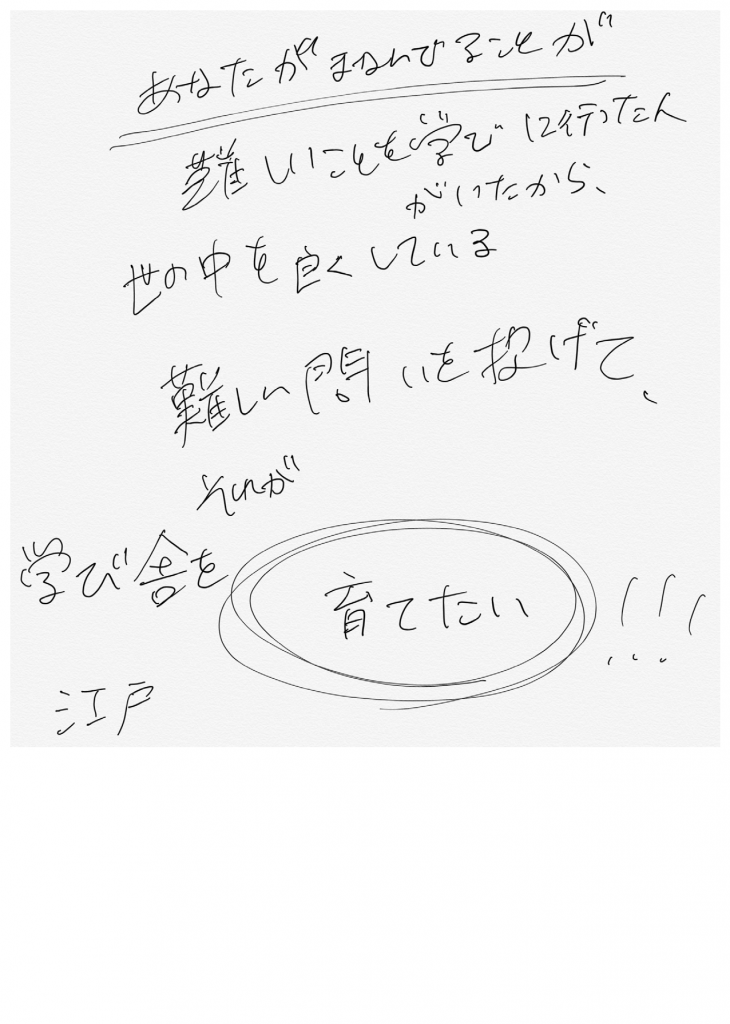 あなたがまなんでることが
難しいことを学びに行ったん
がいたから、
世の中を良くしている
難しい問いを投げて、
それが
学び舎を
育てたい!!!
江戸